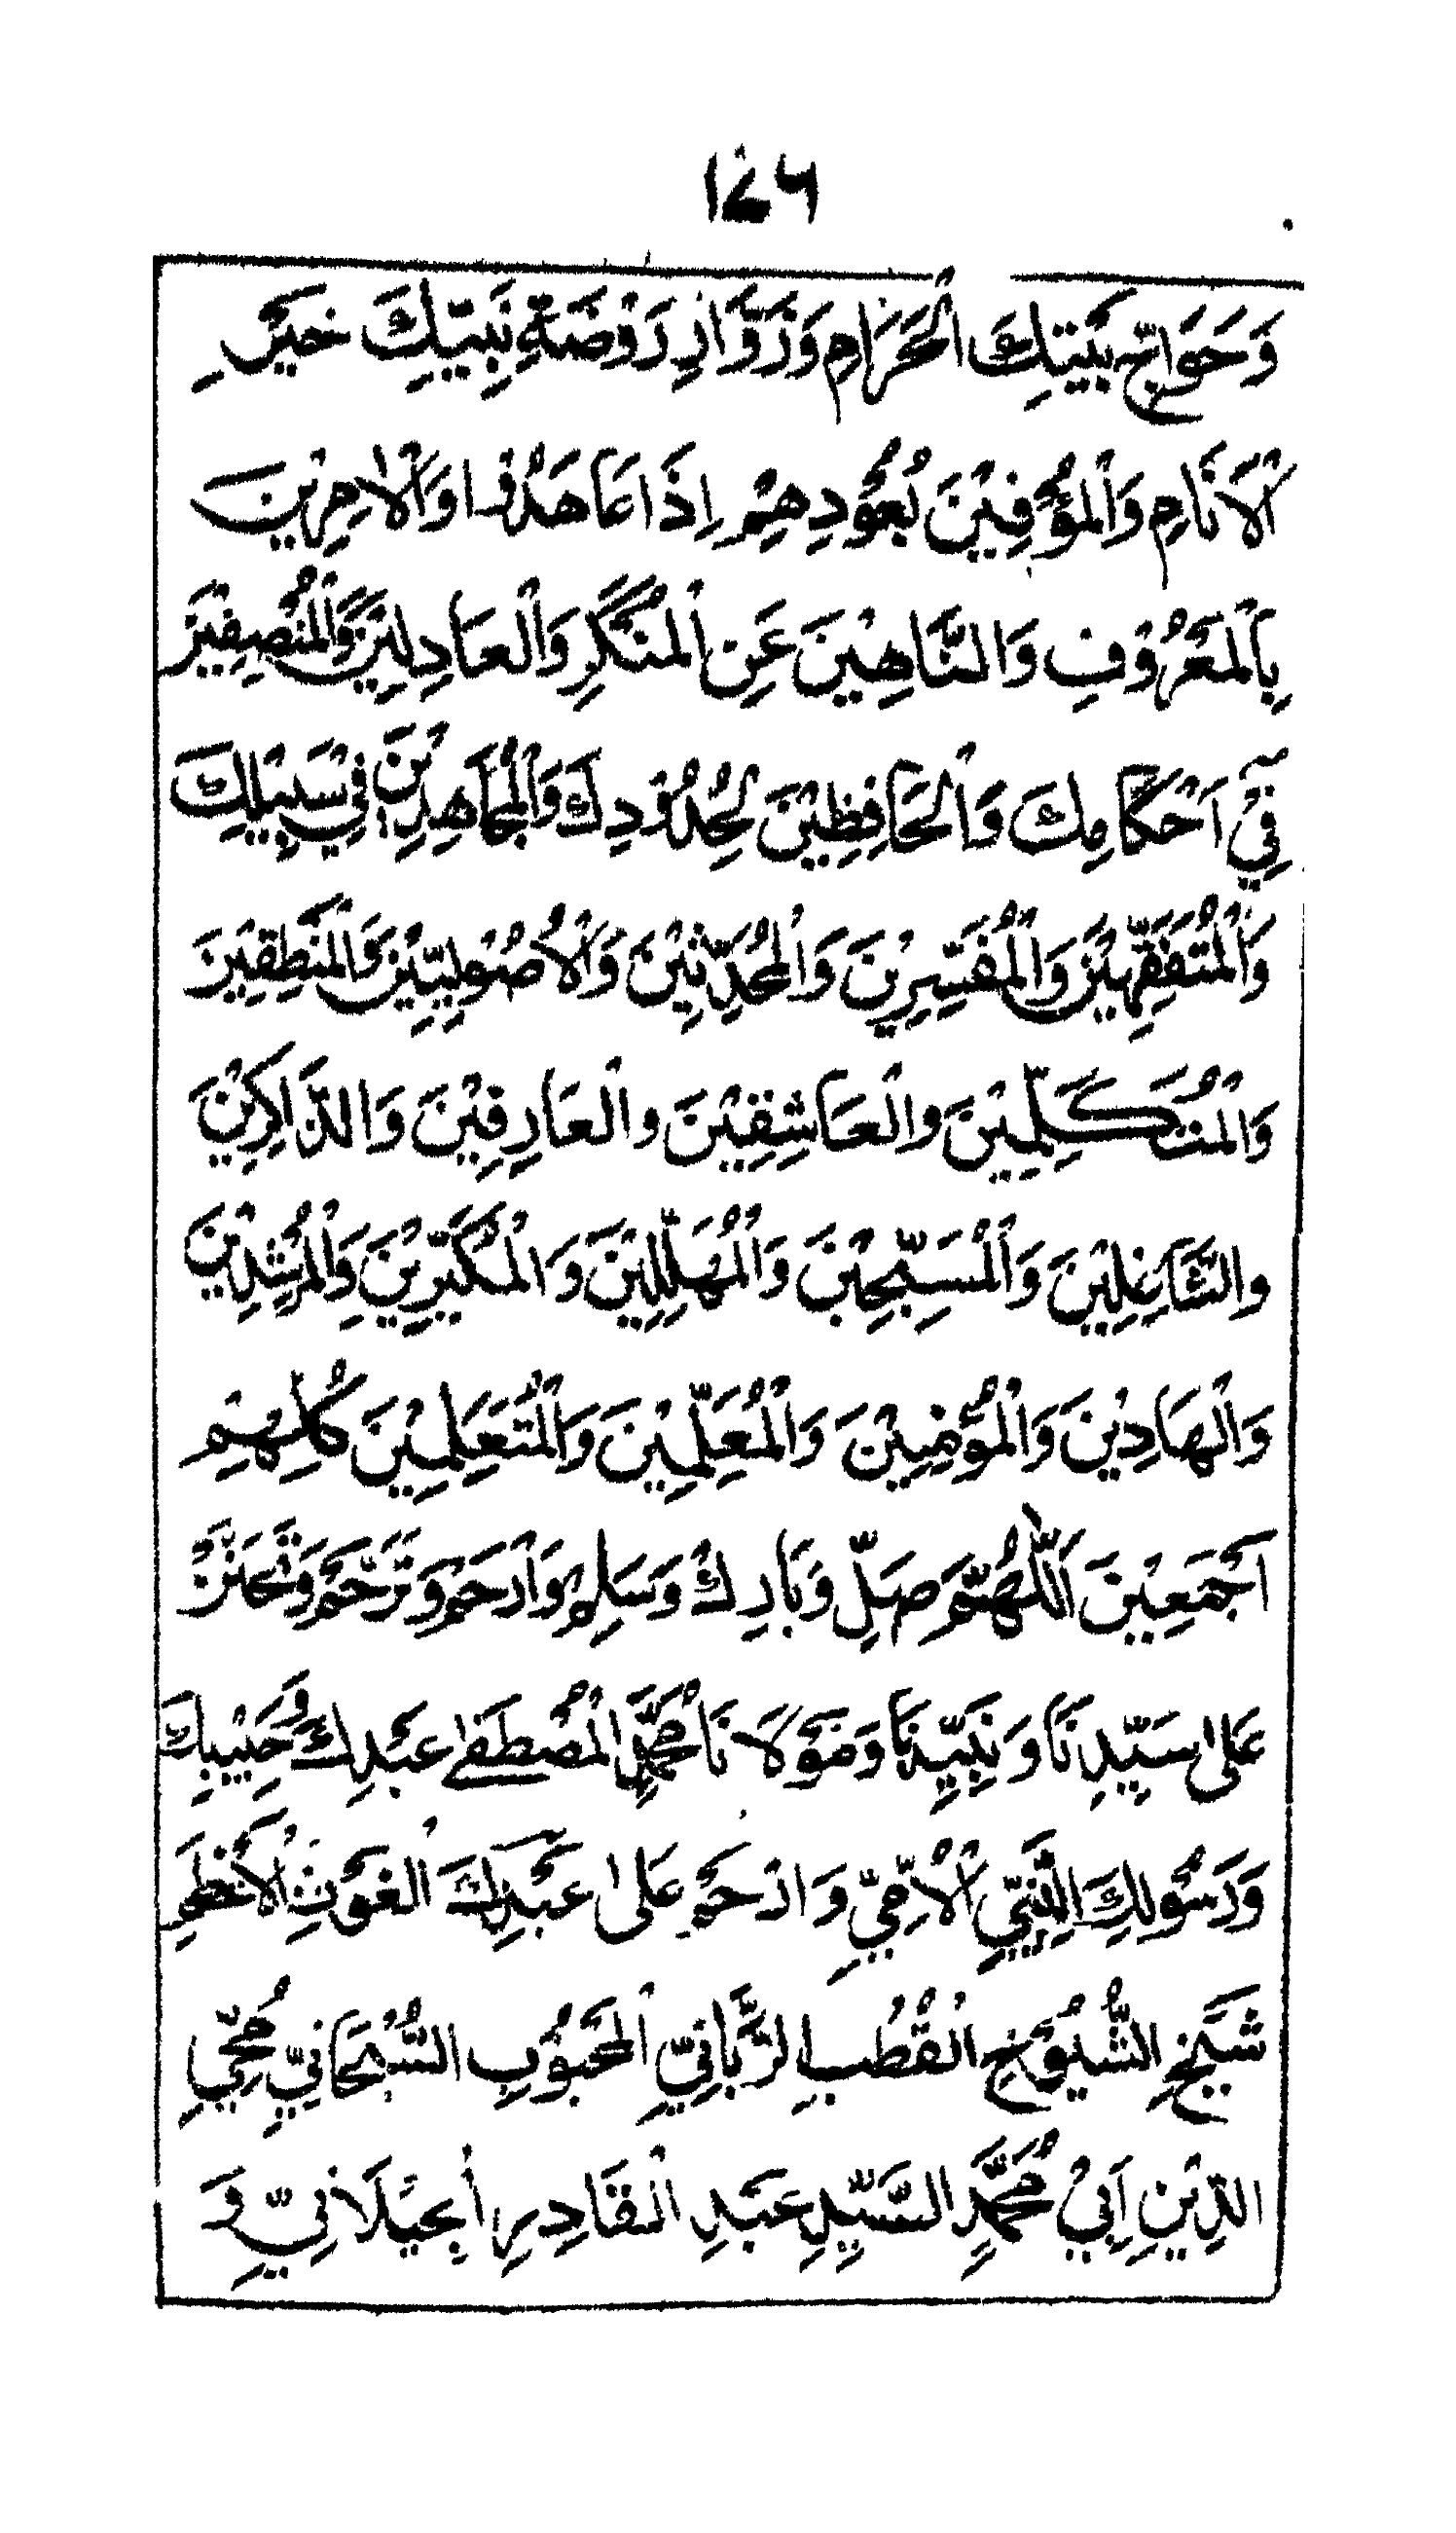 ١٤٦
وَحَوَاجِّ بَيْتِكَ الْحَرَامِ وَزُوَّارِ رَوْضَةِ نَبِيِّكَ خَيْرِ
الْأَنَامِ وَالْمُوْفِيْنَ بِعُهُوْدِهِمْ اِذَا عَاهَدُوْا وَالْاٰمِرِيْنَ
بِالْمَعْرُوْفِ وَالنَّاهِيْنَ عَنِ الْمُنْكَرِ وَالْعَادِلِيْنَ وَالْمُنْصِفِيْنَ
فِيْٓ اَحْكَامِكَ وَالْحَافِظِيْنَ لِحُدُوْدِكَ وَالْمُجَاهِدِيْنَ فِيْ سَبِيْلِكَ
وَالْمُتَفَقِّهِيْنَ وَالْمُفَسِّرِيْنَ وَالْمُحَدِّثِيْنَ وَالْاُصُوْلِيِّيْنَ وَالْمَنْطِقِيْنَ
وَالْمُتَكَلِّمِيْنَ والْعَاشِقِيْنَ والْعَارِفِيْنَ وَالذَّاكِرِيْنَ
والشَّاغِلِيْنَ وَالْمُسَبِّحِيْنَ وَالْمُهَلِّلِيْنَ وَالْمُكَبِّرِيْنَ وَالْمُرْشِدِيْنَ
وَالْهَادِيْنَ وَالْمُؤْمِنِيْنَ وَالْمُعَلِّمِيْنَ وَالْمُتَعَلِّمِيْنَ كُلِّهِمْ
اَجْمَعِيْنَ اَللّٰهُمَّ صَلِّ وَبَارِكْ وَسَلِّمْ وَارْحَمْ وَتَرَحَّمْ وَتَحَنَّنْ
عَلٰى سَيِّدِنَا وَنَبِيِّنَا وَمَوْلَانَا مُحَمَّدِ الْمُصْطَفٰى عَبْدِكَ وَحَبِيْبِكَ
وَرَسُوْلِكَ النَّبِيِّ الْاُمِّيِّ وَارْحَمْ عَلٰى عَبْدِكَ الْغَوْثِ الْاَعْظَمِ
شَيْخِ الشُّيُوْخِ الْقُطْبِ الرَّبَّانِيِّ الْمَحْبُوْبِ السُّبْحَانِيِّ مُحْيِ
الدِّيْنِ اَبِيْ مُحَمَّدٍ السَّيِّدِ عَبْدِ الْقَادِرِ الْجِيْلَانِيِّ وَ